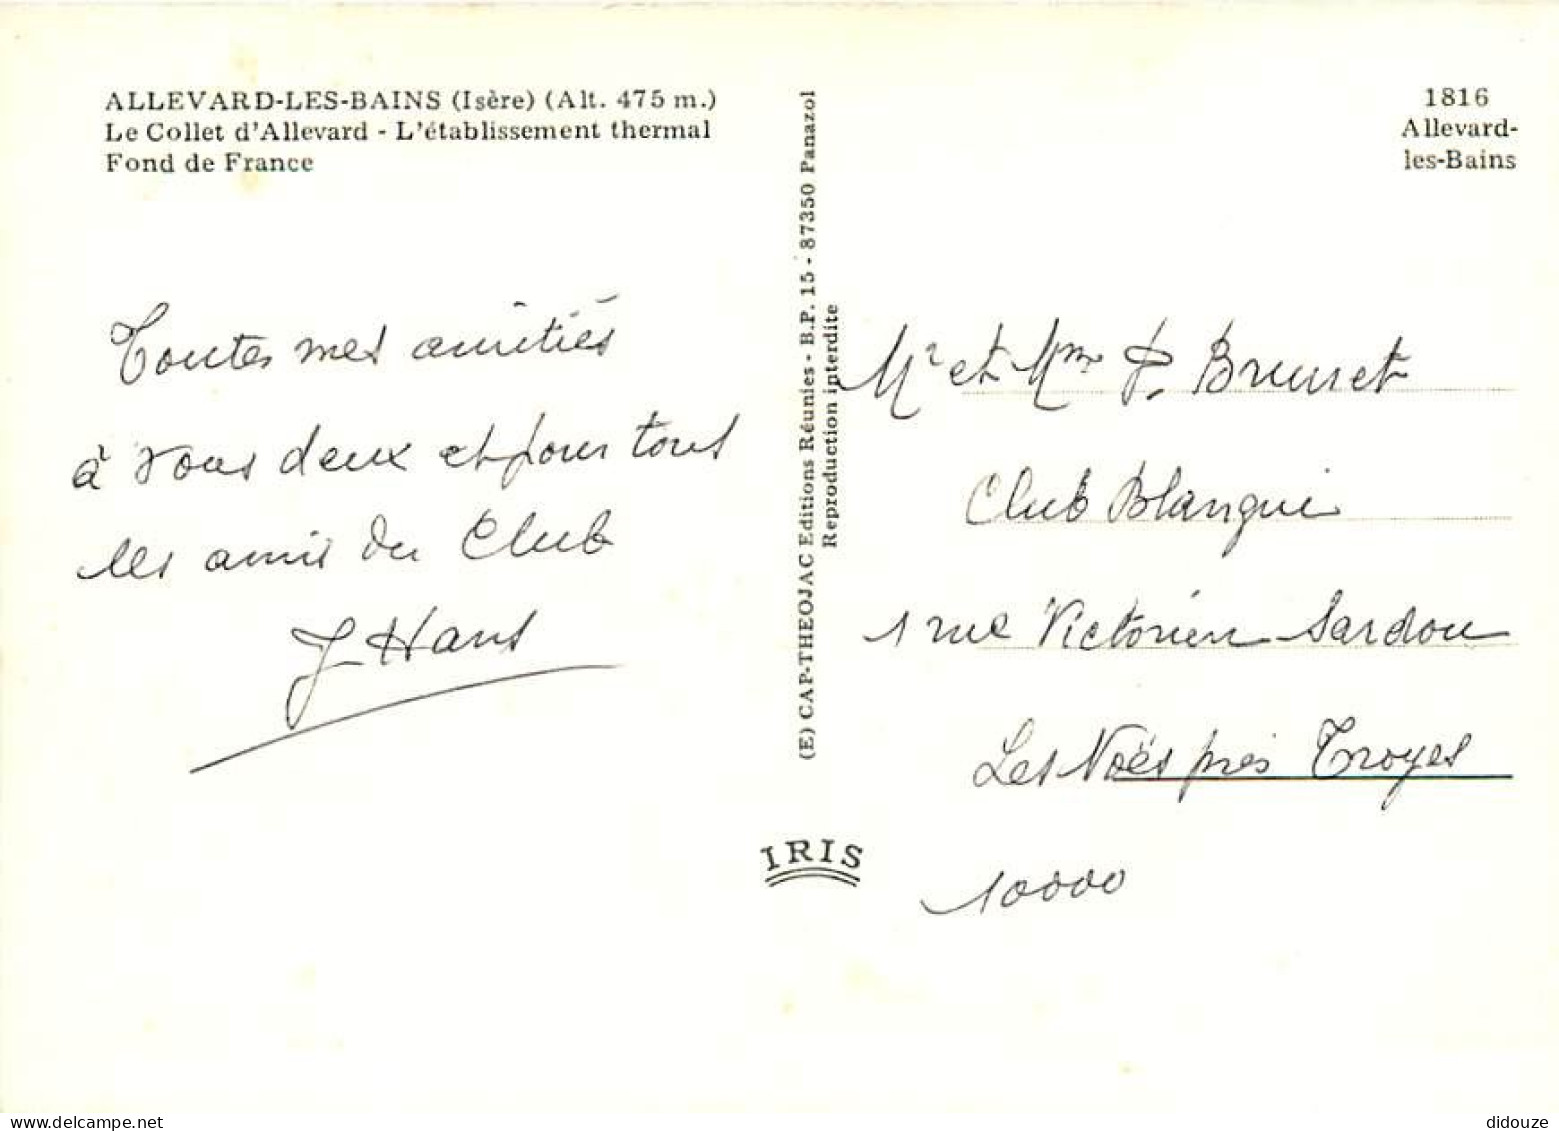 ALLEVARD-LES-BAINS (Isère) (Alt. 475 m.)
Le Collet d'Allevard - L'établissement thermal
Fond de France
1816
Allevard-
les-Bains
Toutes mes amitiés
à vous deux et pour tous
les amis du Club
J Hans
(E) CAP-THEOJAC Editions Réunies - B.P. 15 - 87350 Panazol
Reproduction interdite
Mr et Mme P. Brunet
Club Blanqui
1 rue Victorien Sardou
Les Noës près Troyes
10000
IRIS
www.delcampe.net
didouze